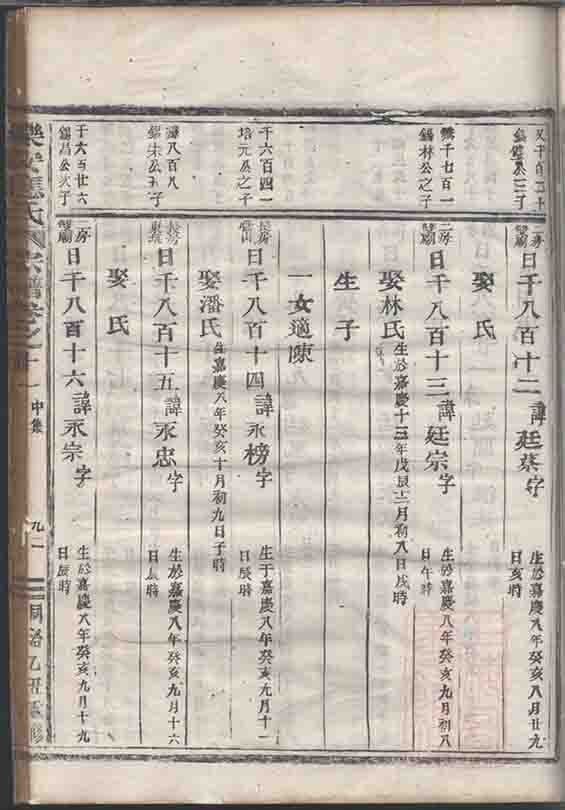 二房
日千八百十二 諱廷蔡字 生於嘉慶八年癸亥八月廿九日亥時
娶氏
千七百一
錫林公之子
二房
日千八百十三 諱廷宗字 生於嘉慶八年癸亥九月初八日午時
娶林氏 生於嘉慶十三年戊辰十二月初八日戌時
生子
一女適陳
千六百四一
培元公之子
長房
日千八百十四 諱永榜字 生于嘉慶八年癸亥九月十一日辰時
娶潘氏 生嘉慶八年癸亥十月初九日子時
八百八
錫朱公之子
長房
日千八百十五 諱永忠字 生於嘉慶八年癸亥九月十六日辰時
娶氏
千六百廿六
錫昌公次子
房
日千八百十六 諱永宗字 生於嘉慶八年癸亥九月十九日辰時
氏宗譜卷之十一 中集 九一 同治乙丑重修